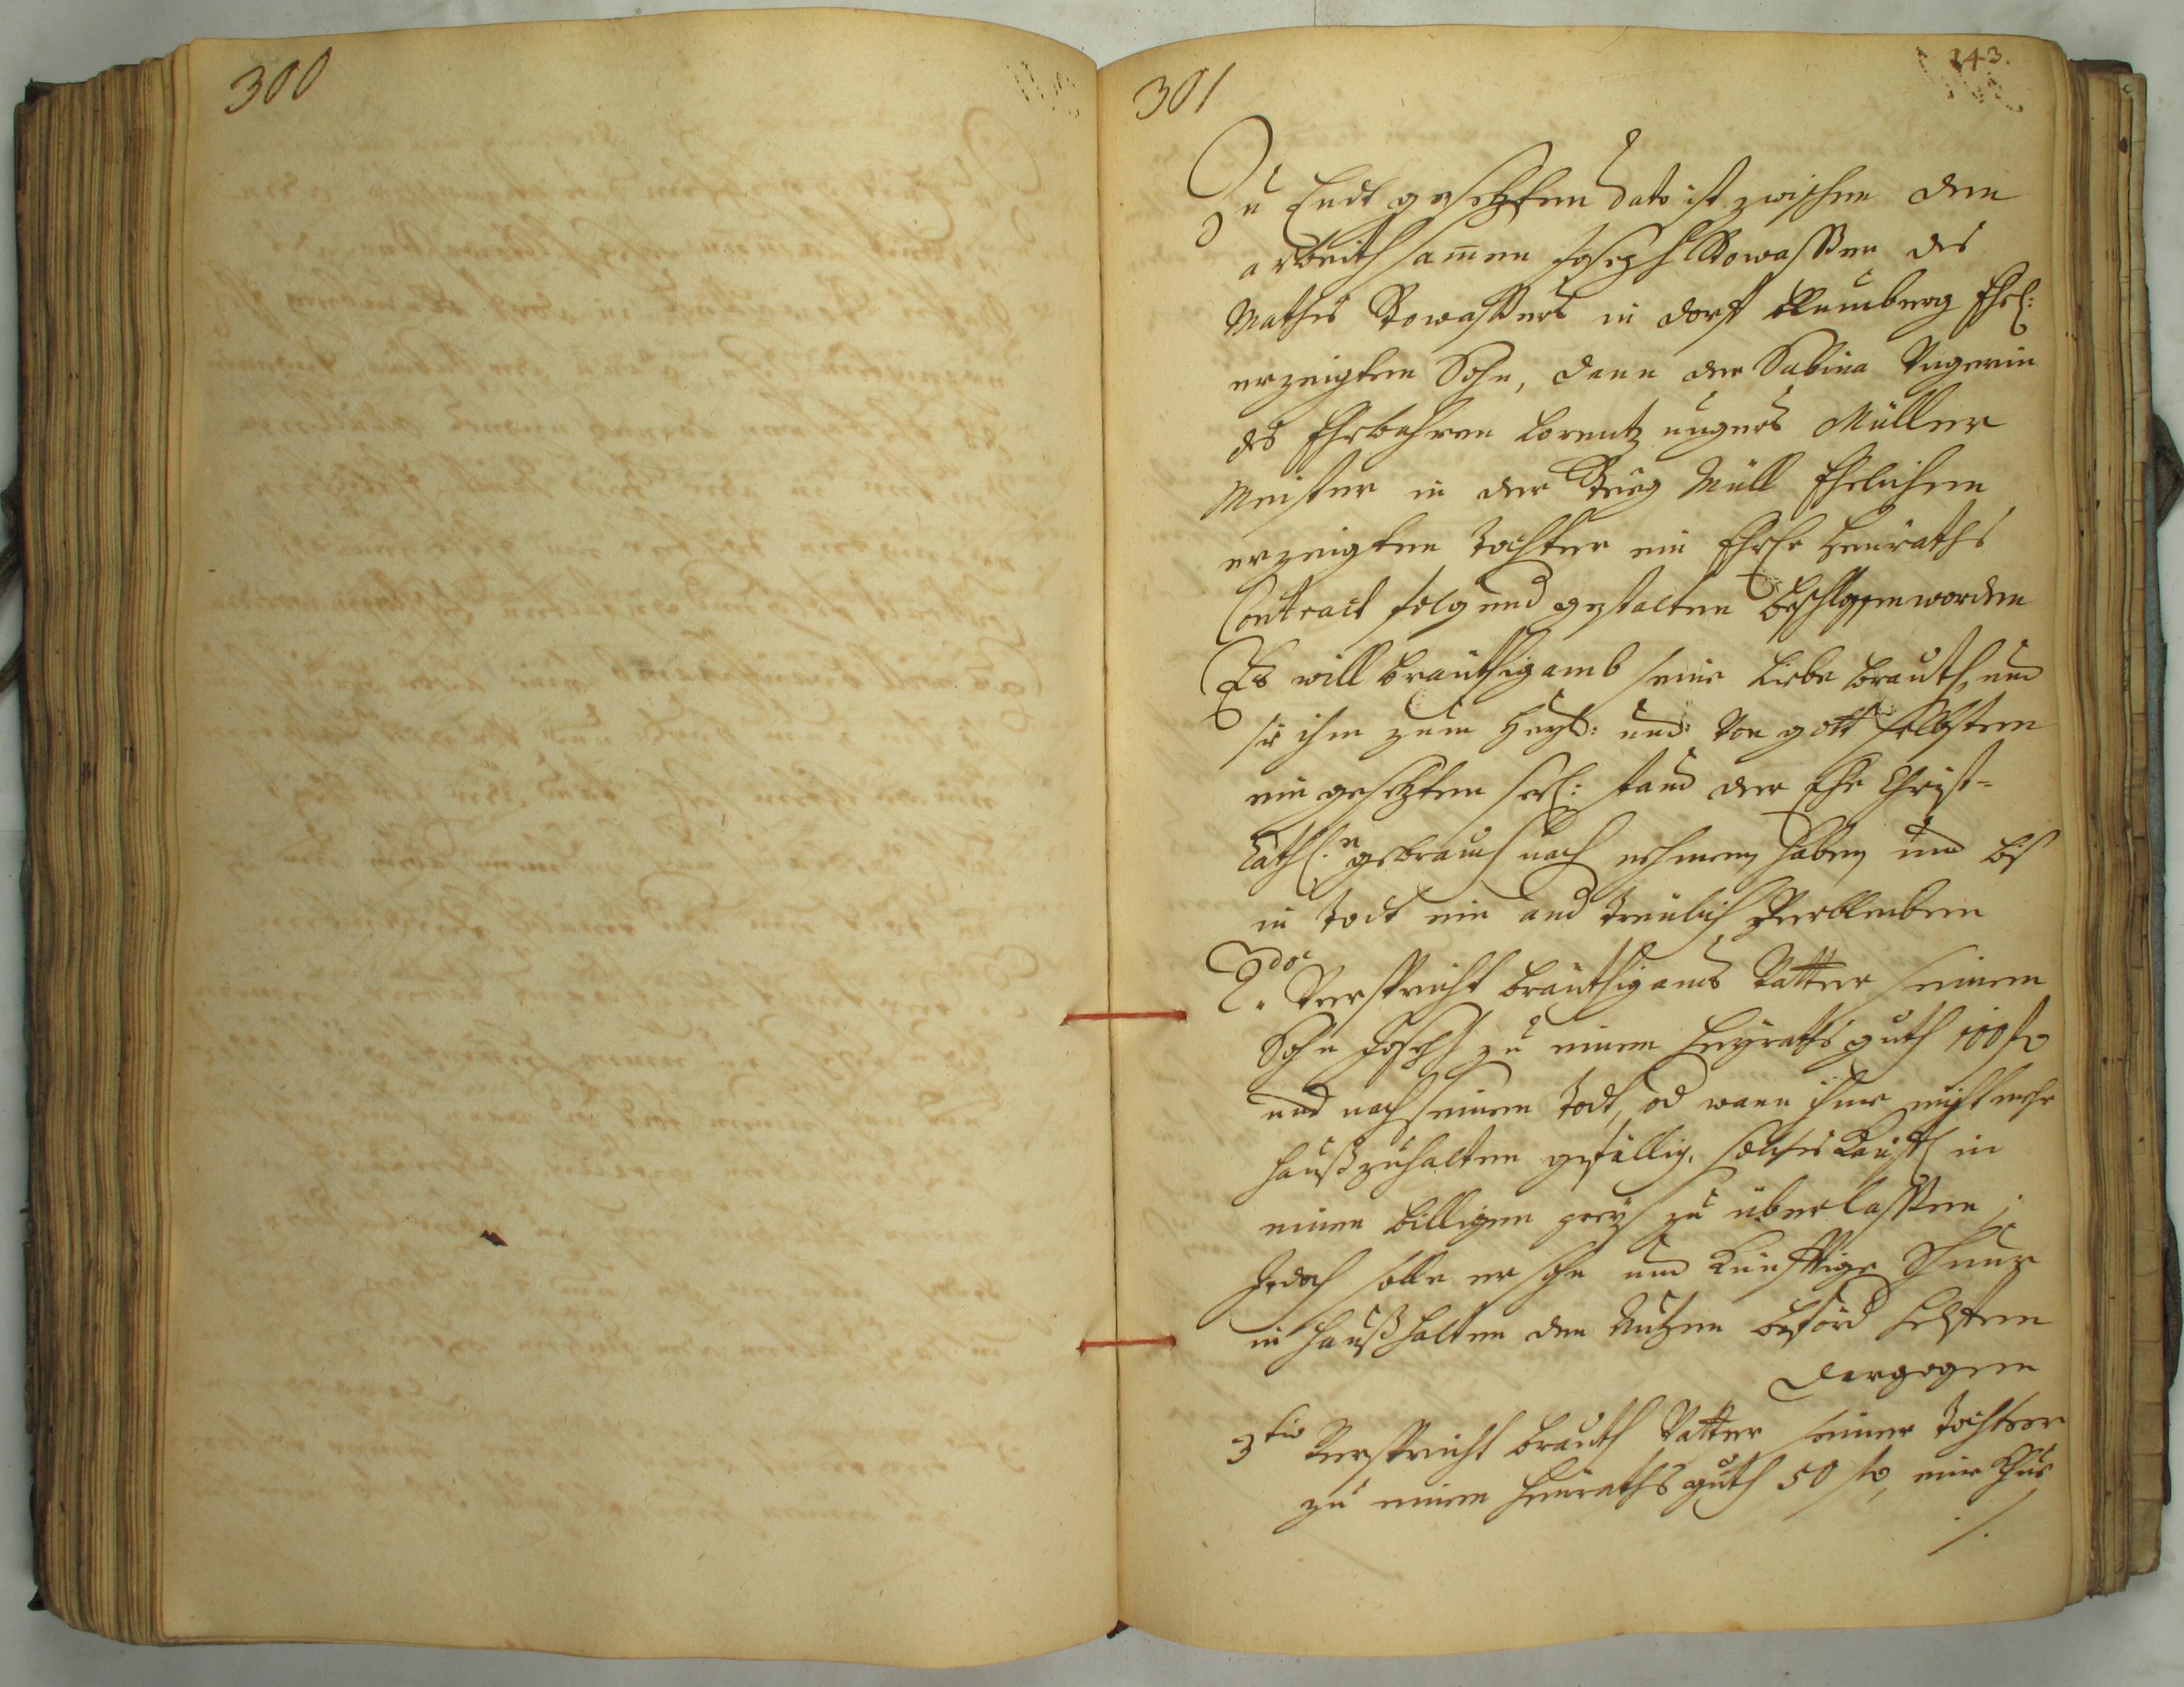 300
301
243.
Zu Endt gesetzten dato ist zwischen dem
arbeithsamen Joseph Stowasser des
Mathes Stowassers in dorf Blumberg Ehel:
erzeigten Sohn, dann der Sabina Ungerin
des Ehrbahren Lorentz Ungers Müller
Meister in der Steig Müll Ehelichen
erzeigten Tochter ein Ehrhe Heuraths
Contract folgend gestalten beschlossen worden
Es will bräuthigamb seine liebe brauth, und
sie ihm zum Heyl: und: Von gott selbsten
ein gesetzten stand der Ehe Christ-
Cathl:n gebrauch nach nehmen, haben, und bis
in Todt ein and treulich Verbleiben
2do Verspricht bräuthigambs Vatter seinem
Sohn Joseph zu einem Heyraths guth 100 fl
und nach seinem Todt, od wann ihme nicht mehr
haußzuhalten gefällig, in
einen billigen preyß zu überlassen,
Jedoch solle er sohn und Künfftige Schnur
in haußhalten den Nutzen beförd helffen
Dargegen
3tio Verspricht brauth Vatter seiner Tochter
zu einem Heuraths guth 50 fl, eine Khue
./.